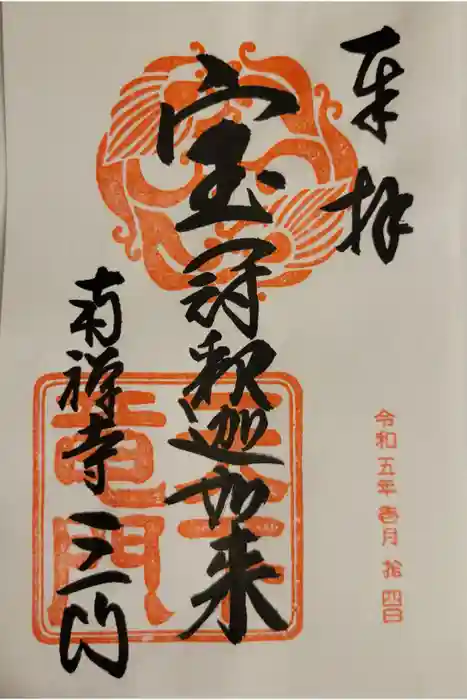 奉拝
宝冠釈迦如来
南禅寺 三門
令和五年壱月拾四日